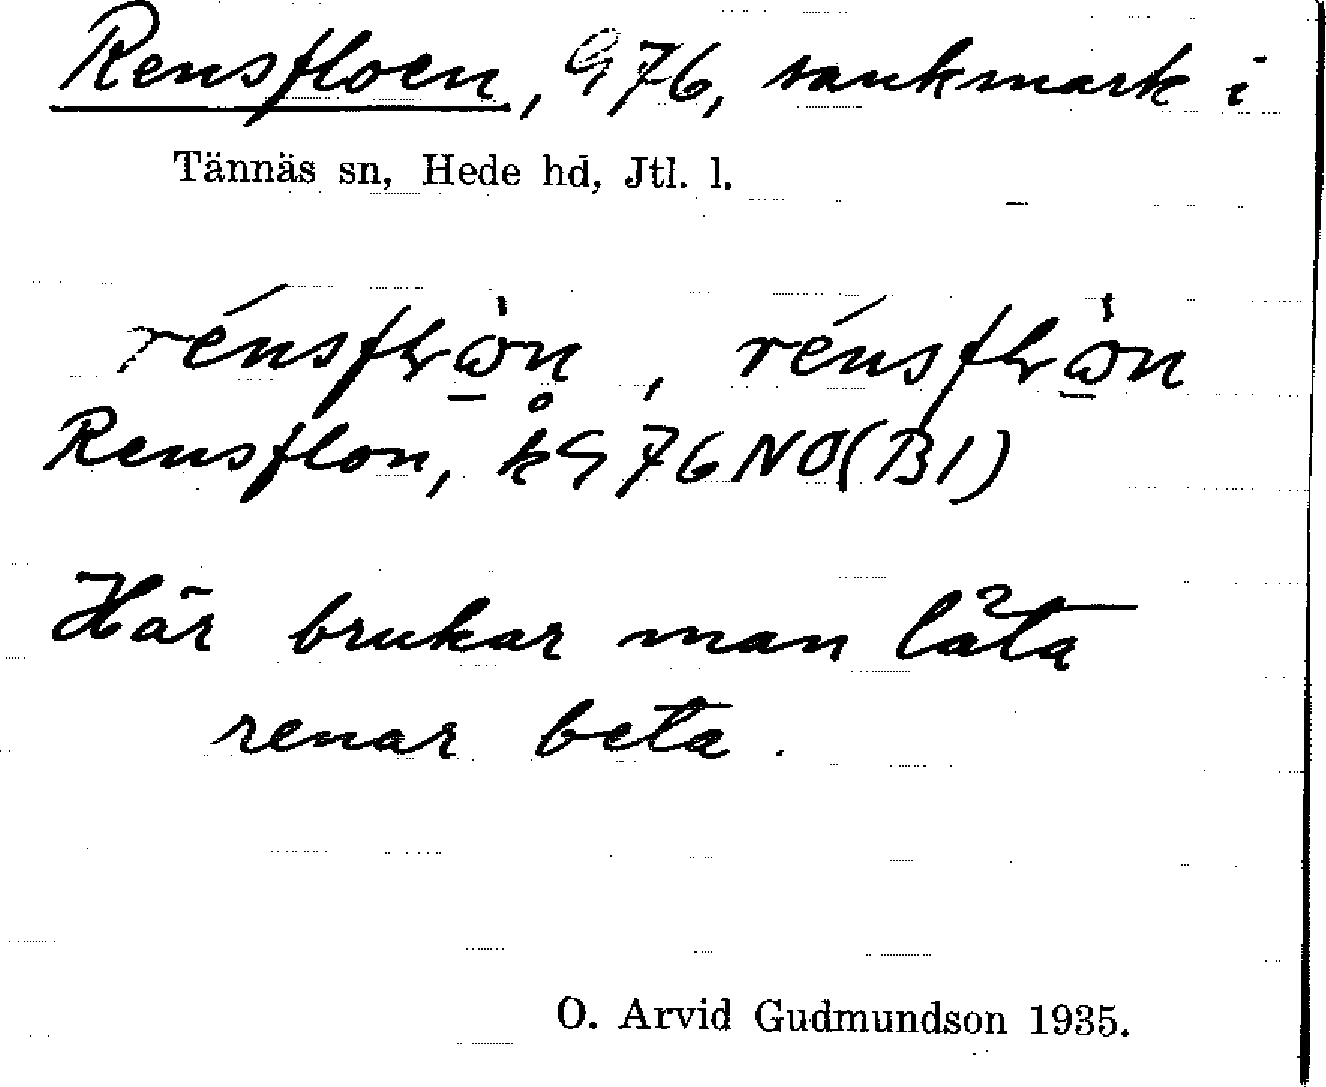 Rensfloen, G76, sankmark i
Tännäs sn, Hede hd, Jtl. l.
Rensflon, k G 76 NO (B1)
Här brukar man låta
renar beta.
O. Arvid Gudmundson 1935.